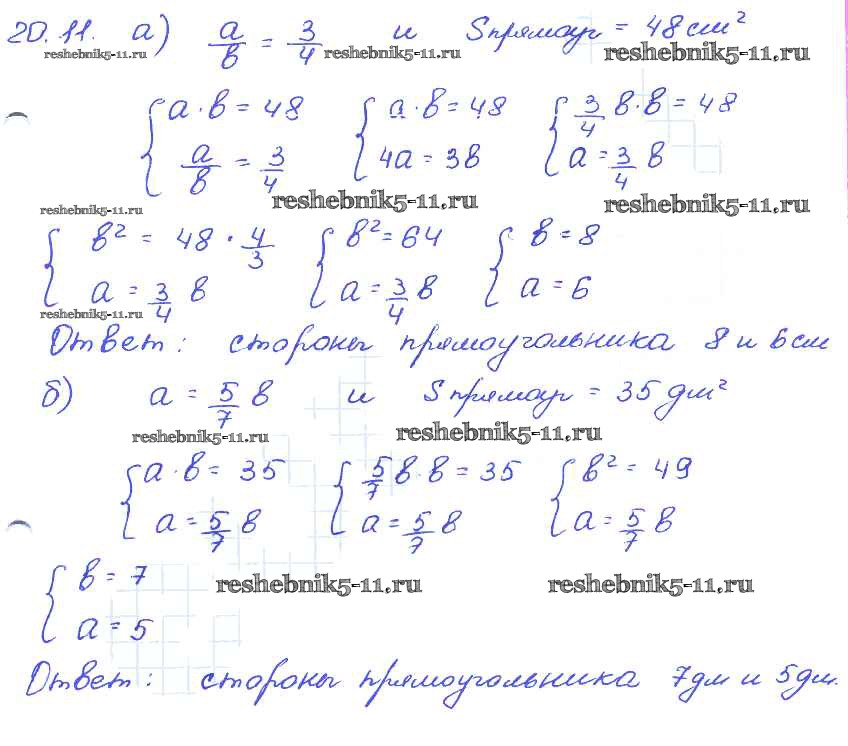 20.11. а) a/b = 3/4 и Sпрямоуг = 48 см²
reshebnik5-11.ru reshebnik5-11.ru reshebnik5-11.ru
{ a·b = 48 { a·b = 48 { 3/4 b·b = 48
a/b = 3/4 4a = 3b a = 3/4 b
reshebnik5-11.ru reshebnik5-11.ru reshebnik5-11.ru
{ b² = 48·4/3 { b² = 64 { b = 8
a = 3/4 b a = 3/4 b a = 6
reshebnik5-11.ru
Ответ: стороны прямоугольника 8 и 6 см
б) a = 5/7 b и Sпрямоуг = 35 дм²
reshebnik5-11.ru reshebnik5-11.ru
{ a·b = 35 { 5/7 b·b = 35 { b² = 49
a = 5/7 b a = 5/7 b a = 5/7 b
{ b = 7
reshebnik5-11.ru reshebnik5-11.ru
a = 5
Ответ: стороны прямоугольника 7дм и 5дм.